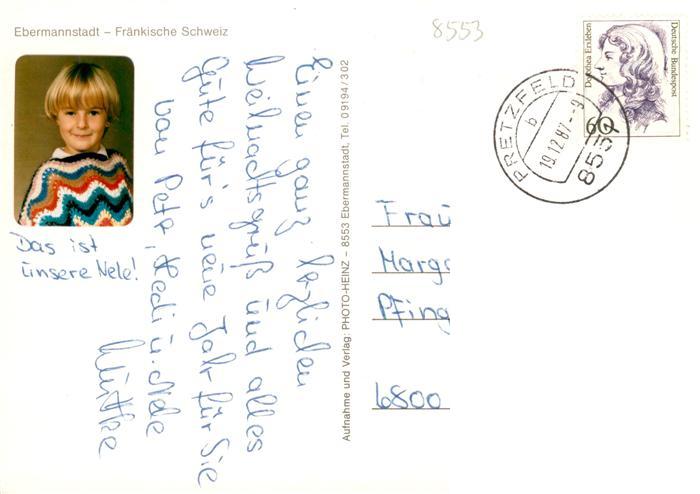 Ebermannstadt – Fränkische Schweiz
8553
Das ist
unsere Nele!
Einen ganz herzlichen
Weihnachtsgruß und alles
Gute für's neue Jahr für Sie
von Pete, Hedi u. Nele
Aufnahme und Verlag: PHOTO-HEINZ – 8553 Ebermannstadt, Tel. 09194/302
Dorothea Erxleben
Deutsche Bundespost
60
PRETZFELD
b
19.12.87.--9
8551
Frau
Marga
Pfing
6800